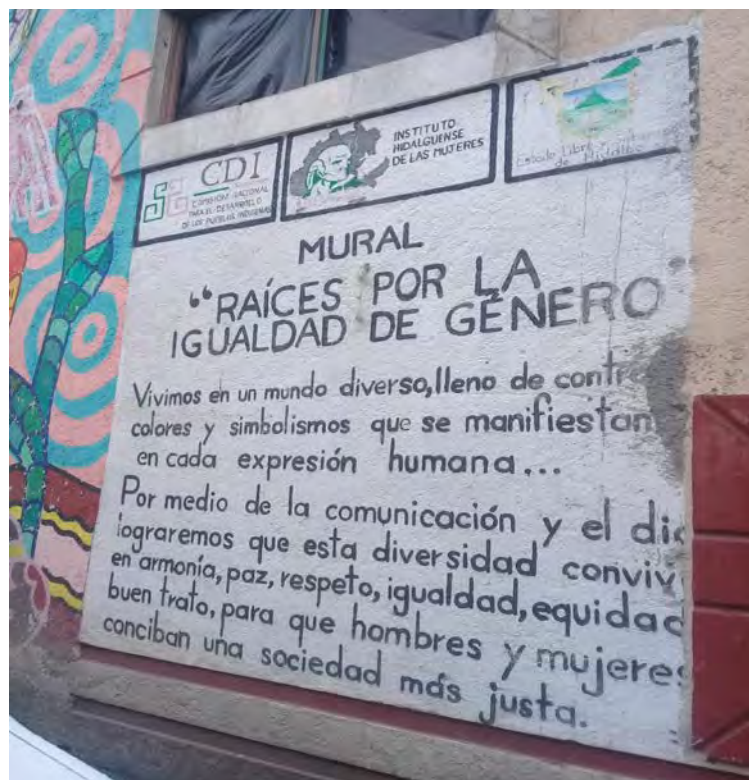 CDI
COMISIÓN NACIONAL
PARA EL DESARROLLO
DE LOS PUEBLOS INDÍGENAS
INSTITUTO
HIDALGUENSE
DE LAS MUJERES
Estado Libre
de Hidalgo
MURAL
"RAÍCES POR LA
IGUALDAD DE GÉNERO"
Vivimos en un mundo diverso, lleno de contr
colores y simbolismos que se manifiestan
en cada expresión humana...
Por medio de la comunicación y el diá
lograremos que esta diversidad conviv
en armonía, paz, respeto, igualdad, equidad
buen trato, para que hombres y mujeres
conciban una sociedad más justa.